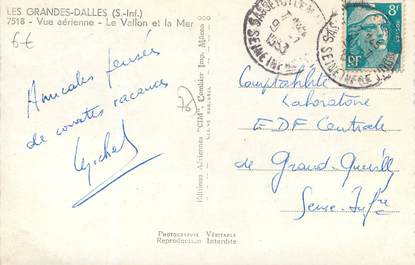 LES GRANDES-DALLES (S.-Inf.)
7518 - Vue aérienne - Le Vallon et la Mer
6€
Amicales pensées
de courtes vacances
Michel
76
Editions Aériennes "CIM" Combier Imp. Mâcon
SASSETOT LE M
1953
SEINE INFRE
8F
Comptabilité
Laboratoire
EDF Centrale
de Grand-Quevilly
Seine-Infre
PHOTOGRAPHIE VÉRITABLE
Reproduction Interdite